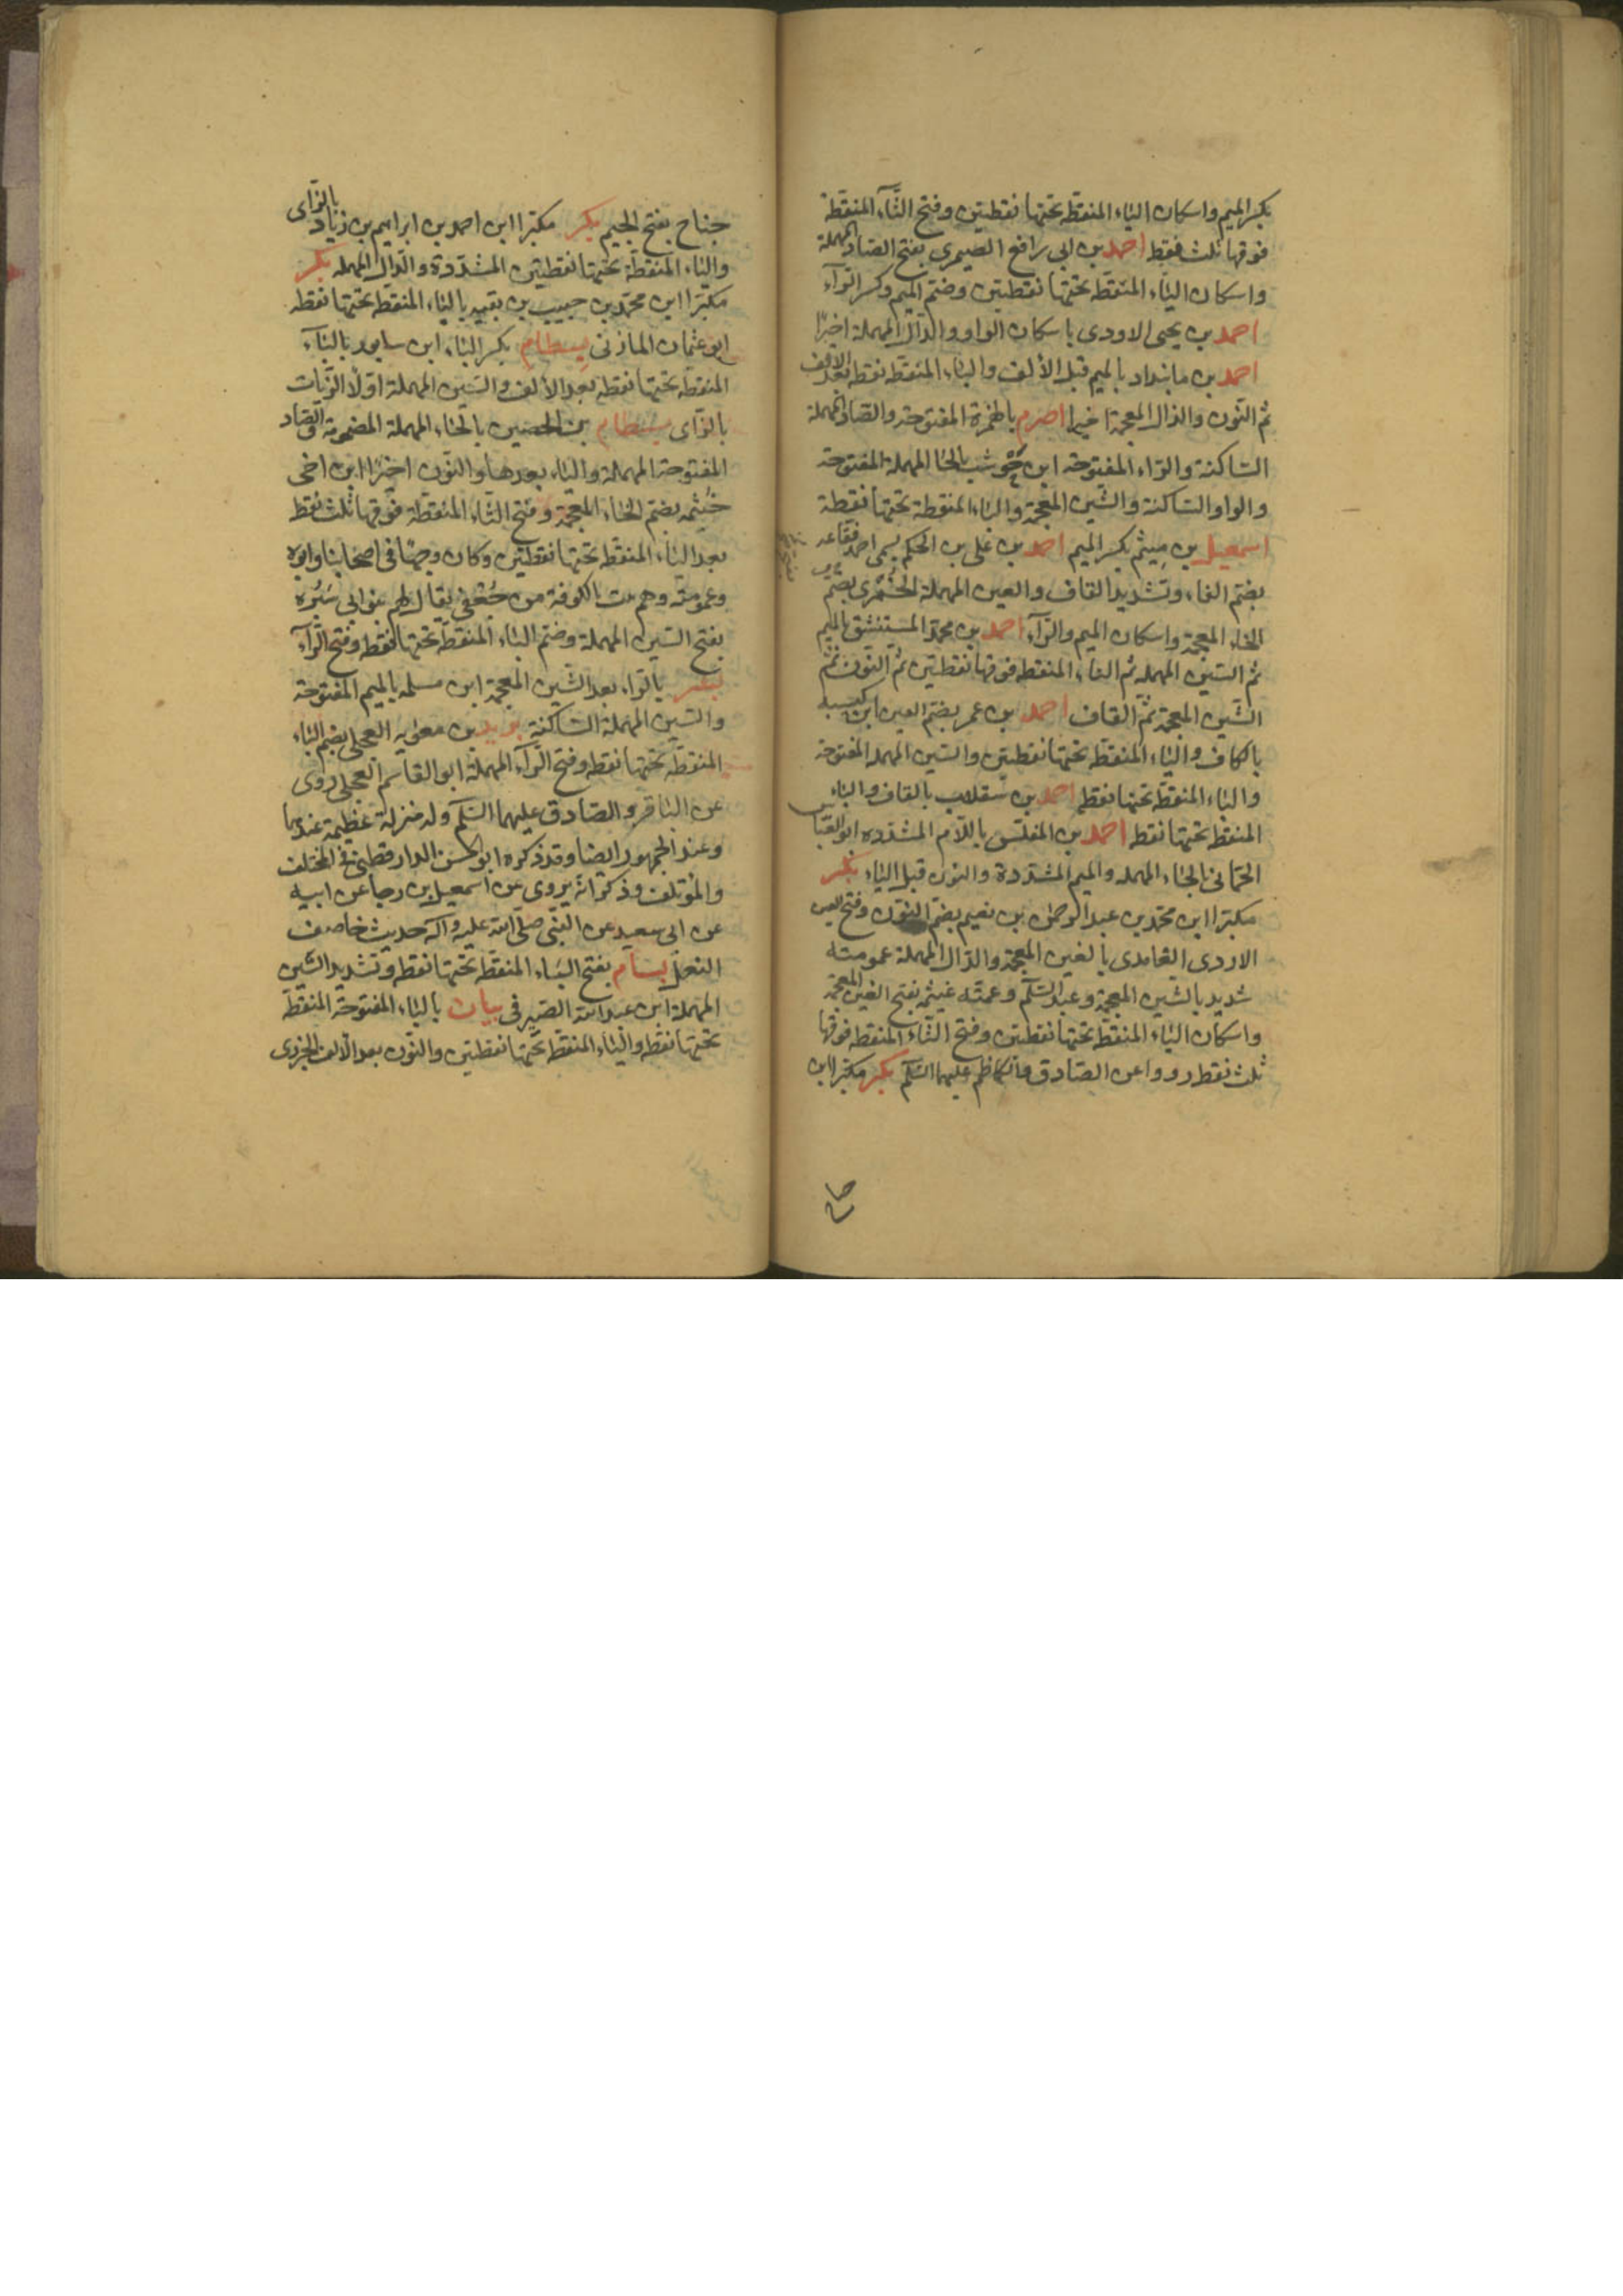 بكسر الميم واسكان الياء المنقطه تحتها نقطتين وفتح الثآء المنقطة
فوقها ثلث نقط احمد بن ابى رافع الصيمرى بفتح الصاد المهملة
واسكان الياء المنقطه تحتها نقطتين وضم الميم وكسر الرآء
احمد بن يحيى الاودى باسكان الواو والدال المهملة اخيرًا
احمد بن مابنداد بالميم قبل الألف والباء المنقطه نقطه بعد الالف
ثم النون والذال المعجمة اخيرا اصرم بالهمزة المفتوحة والصاد المهملة
الساكنة والراء المفتوحة ابن حوشب بالحاء المهملة المفتوحة
والواو الساكنة والشين المعجمة والباء المنقطة تحتها نقطة
اسمعيل بن ميثم بكسر الميم احمد بن على بن الحكم يسمى احمد فقاعه
بضم الفاء وتشديد القاف والعين المهملة الخمرى بضم
الخاء المعجمة واسكان الميم والرآء احمد بن محمد المستنشق بالميم
ثم السين المهمله ثم التاء المنقطه فوقها نقطتين ثم النون ثم
الشين المعجمة ثم القاف احمد بن عمر بضم العين ابن كيسبه
بالكاف والياء المنقطه تحتها نقطتين والسين المهمله المفتوحة
والباء المنقطه تحتها نقطه احمد بن سقلاب بالقاف والباء
المنقطه تحتها نقطه احمد بن المفلس باللام المشدده ابو العباس
الحمانى بالحاء المهمله والميم المشددة والنون قبل الياء بكر
مكبرا ابن محمد بن عبد الرحمن بن نعيم بضم النون وفتح العين
الازدى الغامدى بالغين المعجمة والدال المهملة عمومته
شديد بالشين المعجمة وعبد السلم وعمته غيثمه بفتح الغين المعجمة
واسكان الياء المنقطه تحتها نقطتين وفتح الثاء المنقطه فوقها
ثلث نقط رووا عن الصادق والكاظم عليهما السلم بكر مكبرا ابن
جناح بفتح الجيم بكر مكبرا ابن احمد بن ابراهيم بن زياد بالزاى
والياء المنقطة تحتها نقطتين المشددة والدال المهمله بكر
مكبرا ابن محمد بن حبيب بن بقيه بالباء المنقطه تحتها نقطه
ابو عثمان المازنى بسطام بكسر الباء ابن سابور بالبآء
المنقطه تحتها نقطه بعد الألف والسين المهملة اولا الزيات
بالزاى بسطام بن الحصين بالحاء المهملة المضمومة والصاد
المفتوحة المهملة والياء بعدها والنون اخيرا ابن اخى
خيثمه بضم الخاء المعجمة وفتح الثاء المنقطة فوقها ثلث نقط
بعد الياء المنقطه تحتها نقطتين وكان وجها فى اصحابنا وابوه
وعمومته وهم بيت بالكوفة من جعفى يقال لهم بنو ابى سبره
بفتح السين المهملة وضم الباء المنقطه تحتها نقطه وفتح الرآء
بشر بالراء بعد الشين المعجمة ابن مسلمه بالميم المفتوحة
والسين المهملة الساكنة بريد بن معويه العجلى بضم الباء
المنقطه تحتها نقطه وفتح الرآء المهملة ابو القاسم العجلى روى
عن الباقر والصادق عليهما السلم وله منزلة عظيمة عندهما
وعند الجمهور ايضا وقد ذكره ابو الحسن الدار قطنى فى المختلف
والمؤتلف وذكر انه يروى عن اسمعيل بن رجا عن ابيه
عن ابى سعيد عن النبى صلى الله عليه وآله حديث خاصف
النعل بسام بفتح الباء المنقطه تحتها نقطه وتشديد السين
المهملة ابن عبد الله الصيرفى بيان بالباء المفتوحة المنقطه
تحتها نقطه والياء المنقطه تحتها نقطتين والنون بعد الألف الجزرى